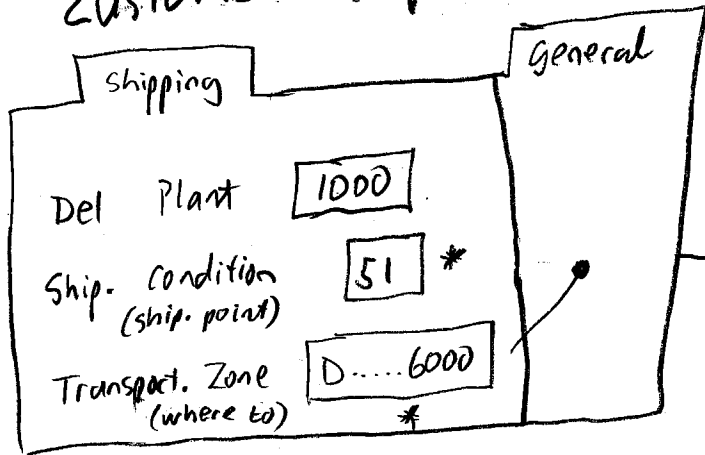 General
Shipping
Del Plant 1000
Ship. Condition 51 *
(ship. point)
Transport. Zone D.....6000
(where to) *